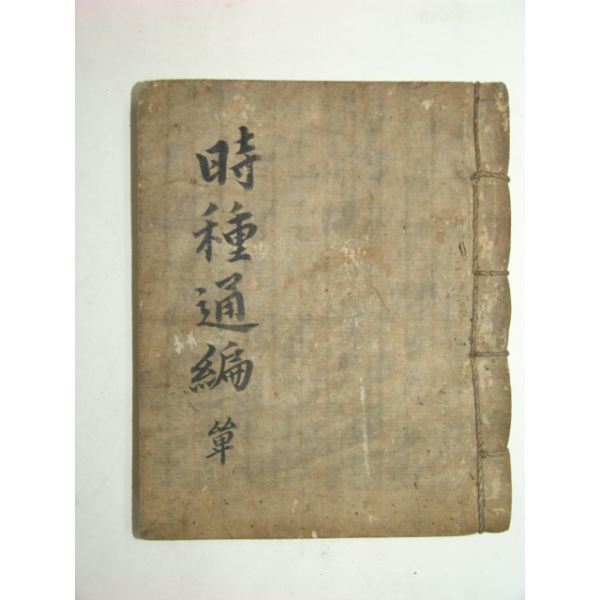 時種通編
單